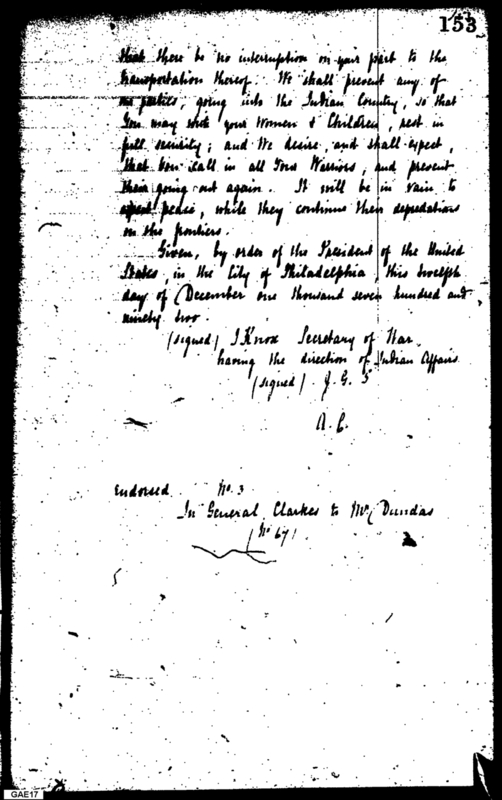 153
that there be no interruption on your part to the
transportation thereof. We shall prevent any of
our parties, going into the Indian Country, so that
You may with your Women & Children, rest in
full security; and We desire, and shall expect,
that You call in all Your Warriors, and prevent
their going out again. It will be in vain to
expect peace, while they continue their depredations
on the frontiers.
Given, by order of the President of the United
States, in the City of Philadelphia, this twelfth
day of December one thousand seven hundred and
ninety two.
(signed) Knox Secretary of War
having the direction of Indian Affairs
(signed) J. G. S
A. C.
Endorsed No. 3
In General Clarkes to Mr Dundas
(No 67)
GAE17